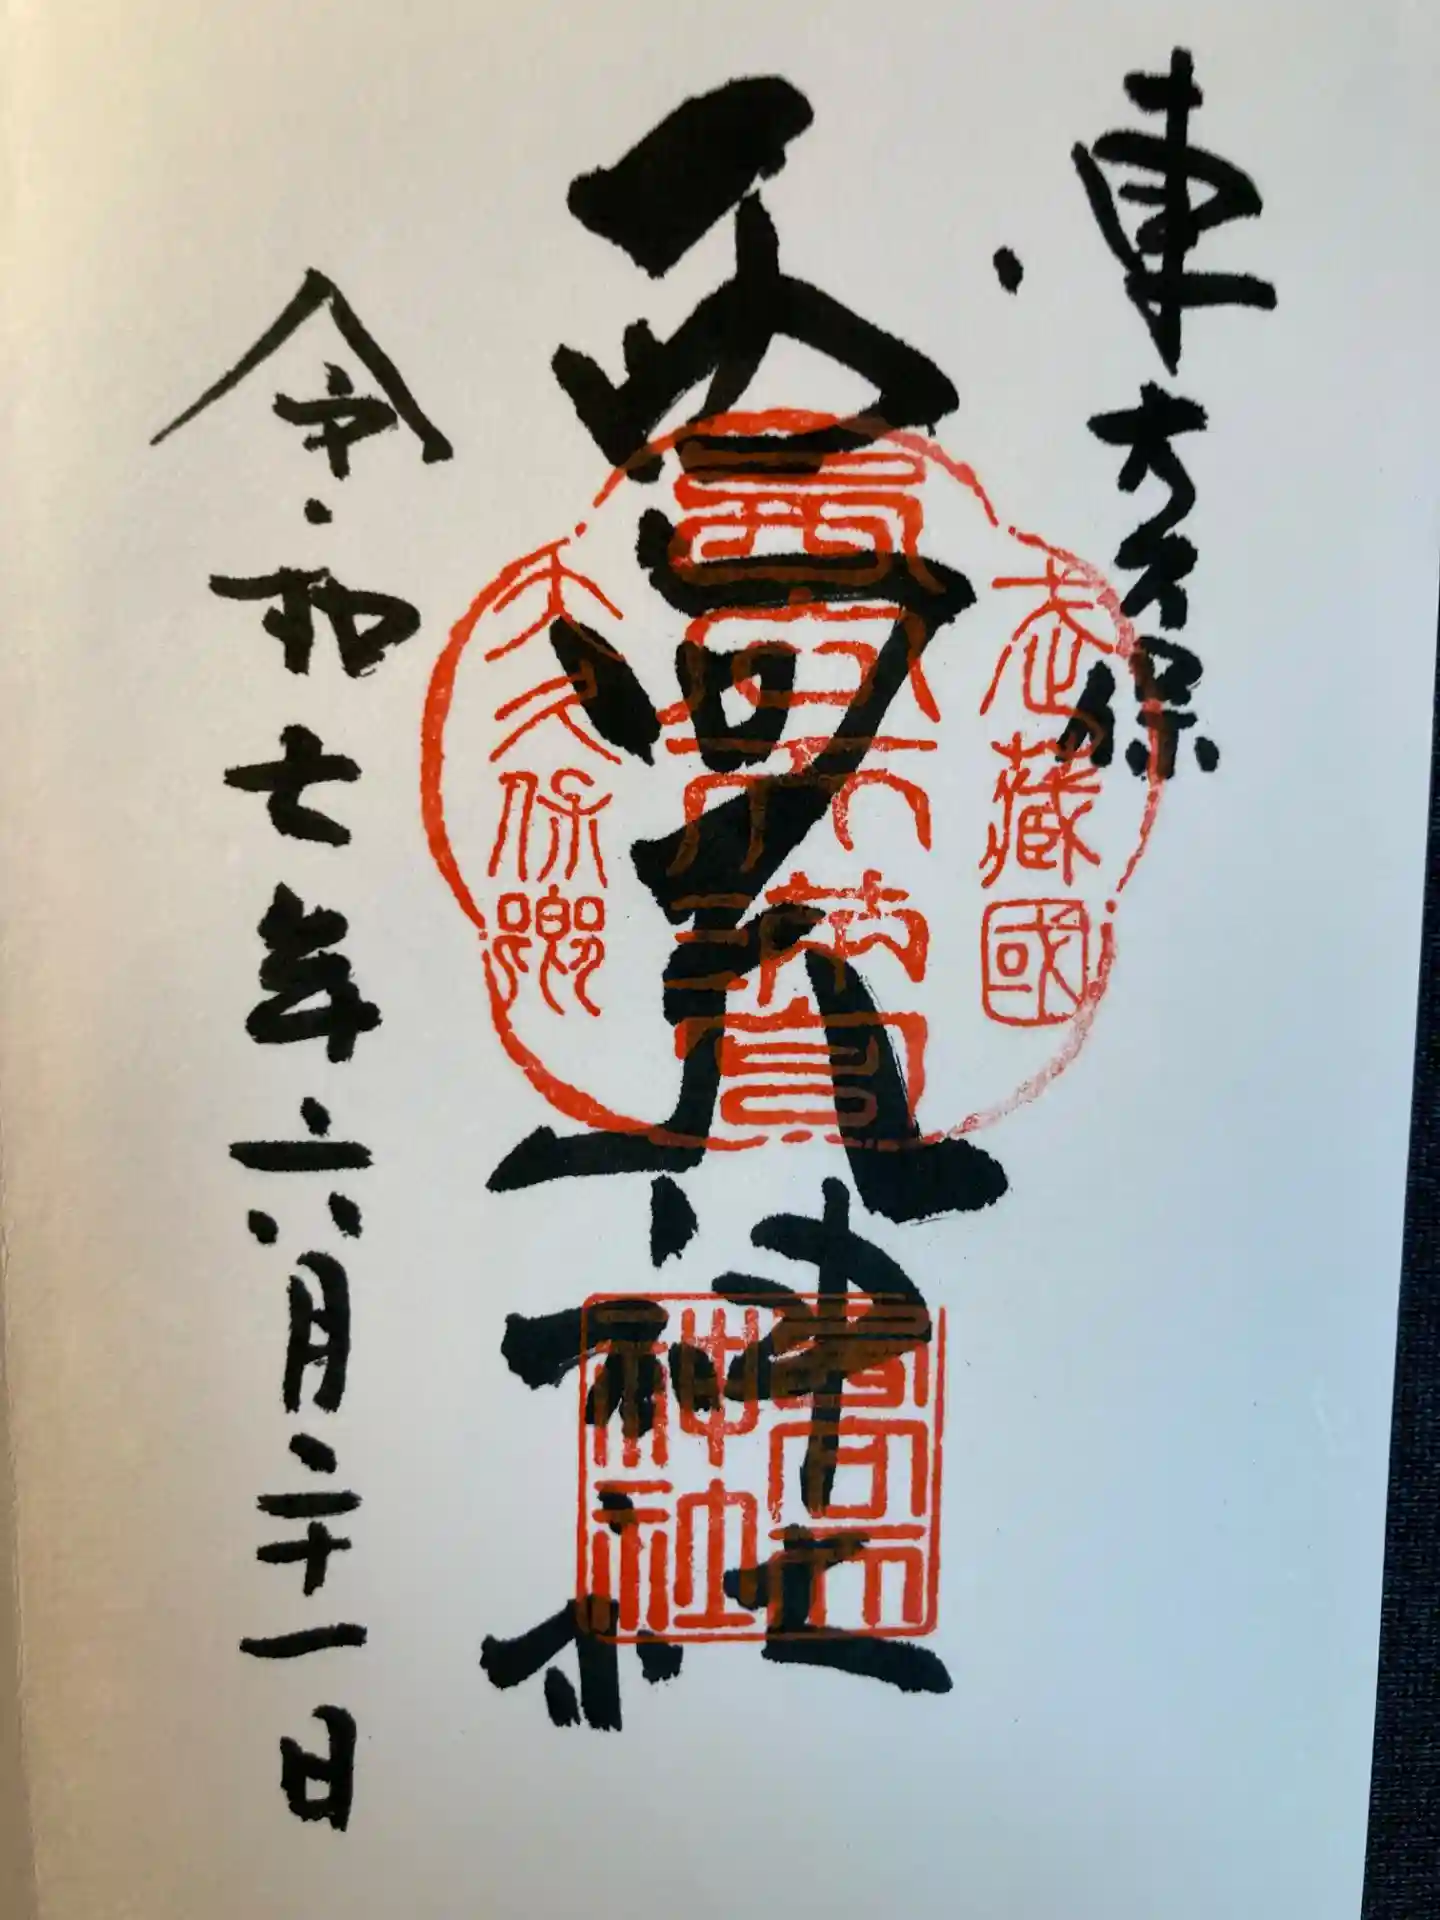 東大久保
西向天神社
令和七年六月二十一日
武藏國
西向天滿宮
大久保鄕
西向天
神社